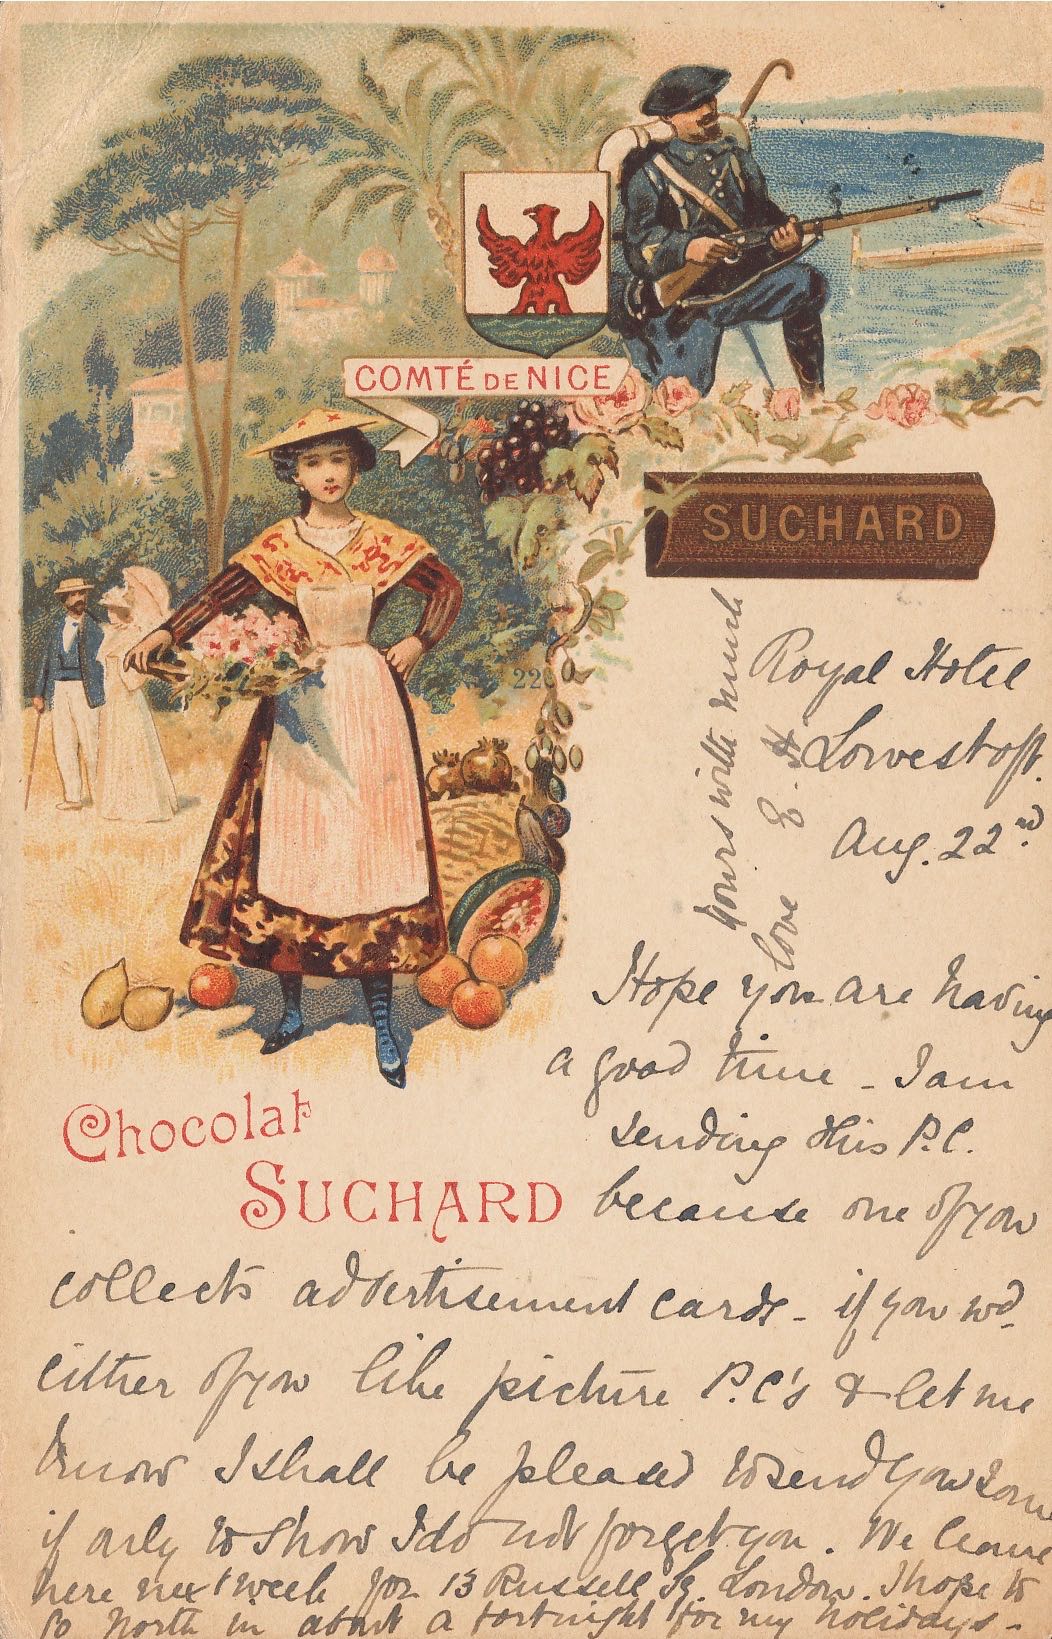 COMTÉ DE NICE
SUCHARD
22
Royal Hotel
Lowestoft.
Aug. 22nd
Hope you are having
a good time - I am
sending this P.C.
Chocolat
SUCHARD
because one of you
collects advertisement cards - if you wd
either of you like picture P.C's & let me
know I shall be pleased to send you some
if only to show I do not forget you. We leave
here next week for 13 Russell Sq. London. I hope to
go North in about a fortnight for my holidays -
Yours with much
love E. H